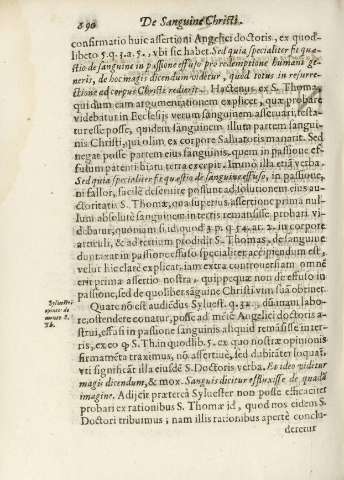 890 De Sanguine Christi.
confirmatio huic assertioni Angelici doctoris, ex quod-
libeto 5. q. 3. a. 5., vbi sic habet. Sed quia specialiter fit quæ-
stio de sanguine in passione effuso pro redemptione humani ge-
neris, de hoc magis dicendum videtur, quod totus in resurre-
ctione ad corpus Christi redierit. Hactenus ex S. Thoma,
qui dum eam argumentationem explicet, qua probare
videbatur in Ecclesijs verum sanguinem asseruari, festa-
tur esse posse, quidem sanguinem illum partem sangui-
nis Christi, qui olim ex corpore Saluatoris manarit. Sed
negat posse partem eius sanguinis, quem in passione ef-
fusum patenti hiatu terra excepit. Immò illa etiā verba.
Sed quia specialiter fit quæstio de sanguine effuso, in passione,
ni fallor, facilè deseruire possunt ad solutionem eius au-
ctoritatis S. Thomæ, qua superius assertione prima nul-
lum absolutè sanguinem in terris remansisse probari vi-
debatur, quoniam si id quod 3. p. q. 54. ar. 2. in corpore
articuli, & ad tertium prodidit S. Thomas, de sanguine
dumtaxat in passione effuso specialiter accipiendum est,
velut hic clarè explicat, iam extra controuersiam omnē
erit prima assertio nostra, quippe quæ non de effuso in
passione, sed de quolibet sāguine Christi vim suā obtinet.
Quare nō est audiēdus Syluest. q. 32. dū tantū labo-
re, ostendere conatur, posse ad mētē Angelici doctoris a-
strui, effusi in passione sanguinis aliquid remāsisse in ter-
ris, ex eo q S. Th in quodlib. 5. ex quo nostræ opinionis
firmamēta traximus, nō assertiuè, sed dubitāter loquat,
vti significāt illa eiusdē S. Doctoris verba. Et ideo videtur
magis dicendum, & mox. Sanguis dicitur effluxisse de quadā
imagine. Adijcit præterea Syluester non posse efficaciter
probari ex rationibus S. Thomæ id, quod nos eidem S.
Doctori tribuimus, nam illis rationibus apertè conclu-
deretur
Syluestri